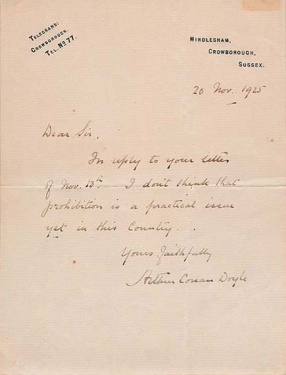 TELEGRAMS:
CROWBOROUGH.
TEL. NO 77.
WINDLESHAM,
CROWBOROUGH,
SUSSEX.
20 Nov. 1925
Dear Sir,
In reply to your letter
of Nov. 13th. I don't think that
prohibition is a practical issue
yet in this Country.
Yours faithfully
Arthur Conan Doyle